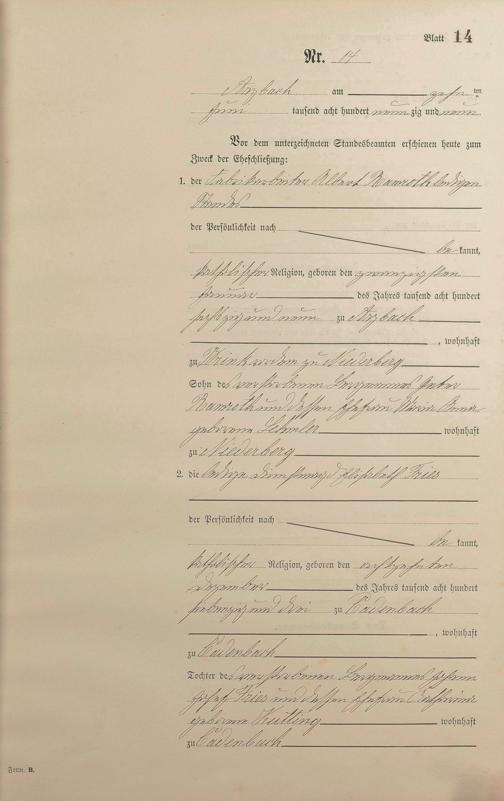 Blatt 14
Nr. 14
Arzbach am zehn ten
Juni tausend acht hundert neun zig und neun
Vor dem unterzeichneten Standesbeamten erschienen heute zum
Zweck der Eheschließung:
1. der Fabrikarbeiter Albert Ramroth ledigen
Standes
der Persönlichkeit nach
be kannt,
katholischer Religion, geboren den zwanzigsten
Januar des Jahres tausend acht hundert
sechzig und neun zu Arzbach
, wohnhaft
zu zu Niederberg
Sohn des verstorbenen Bergmannes Peter
Ramroth und dessen Ehefrau Maria Anna
geborene wohnhaft
zu Niederberg
2. die ledige Dienstmagd Elisabeth Fries
der Persönlichkeit nach
be kannt,
katholischer Religion, geboren den achtzehnten
Dezember des Jahres tausend acht hundert
siebenzig und drei zu Cadenbach
, wohnhaft
zu Cadenbach
Tochter des verstorbenen Bergmannes Johann
Josef Fries und dessen Ehefrau Catharina
geborene wohnhaft
zu Cadenbach
Form. B.